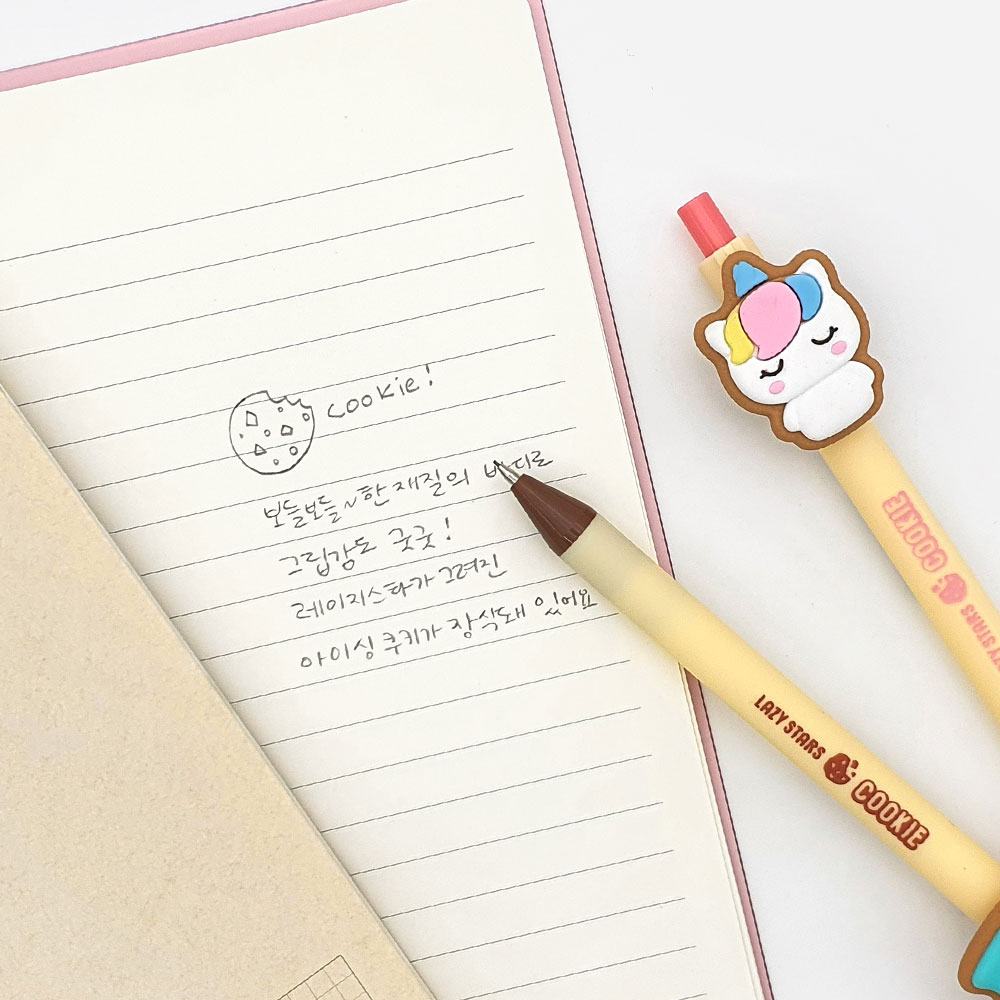 cookie!
보들보들~한 재질의 바디로
그립감도 굿굿!
레이지스타가 그려진
아이싱 쿠키가 장식돼 있어요
LAZY STARS COOKIE
LAZY STARS COOKIE